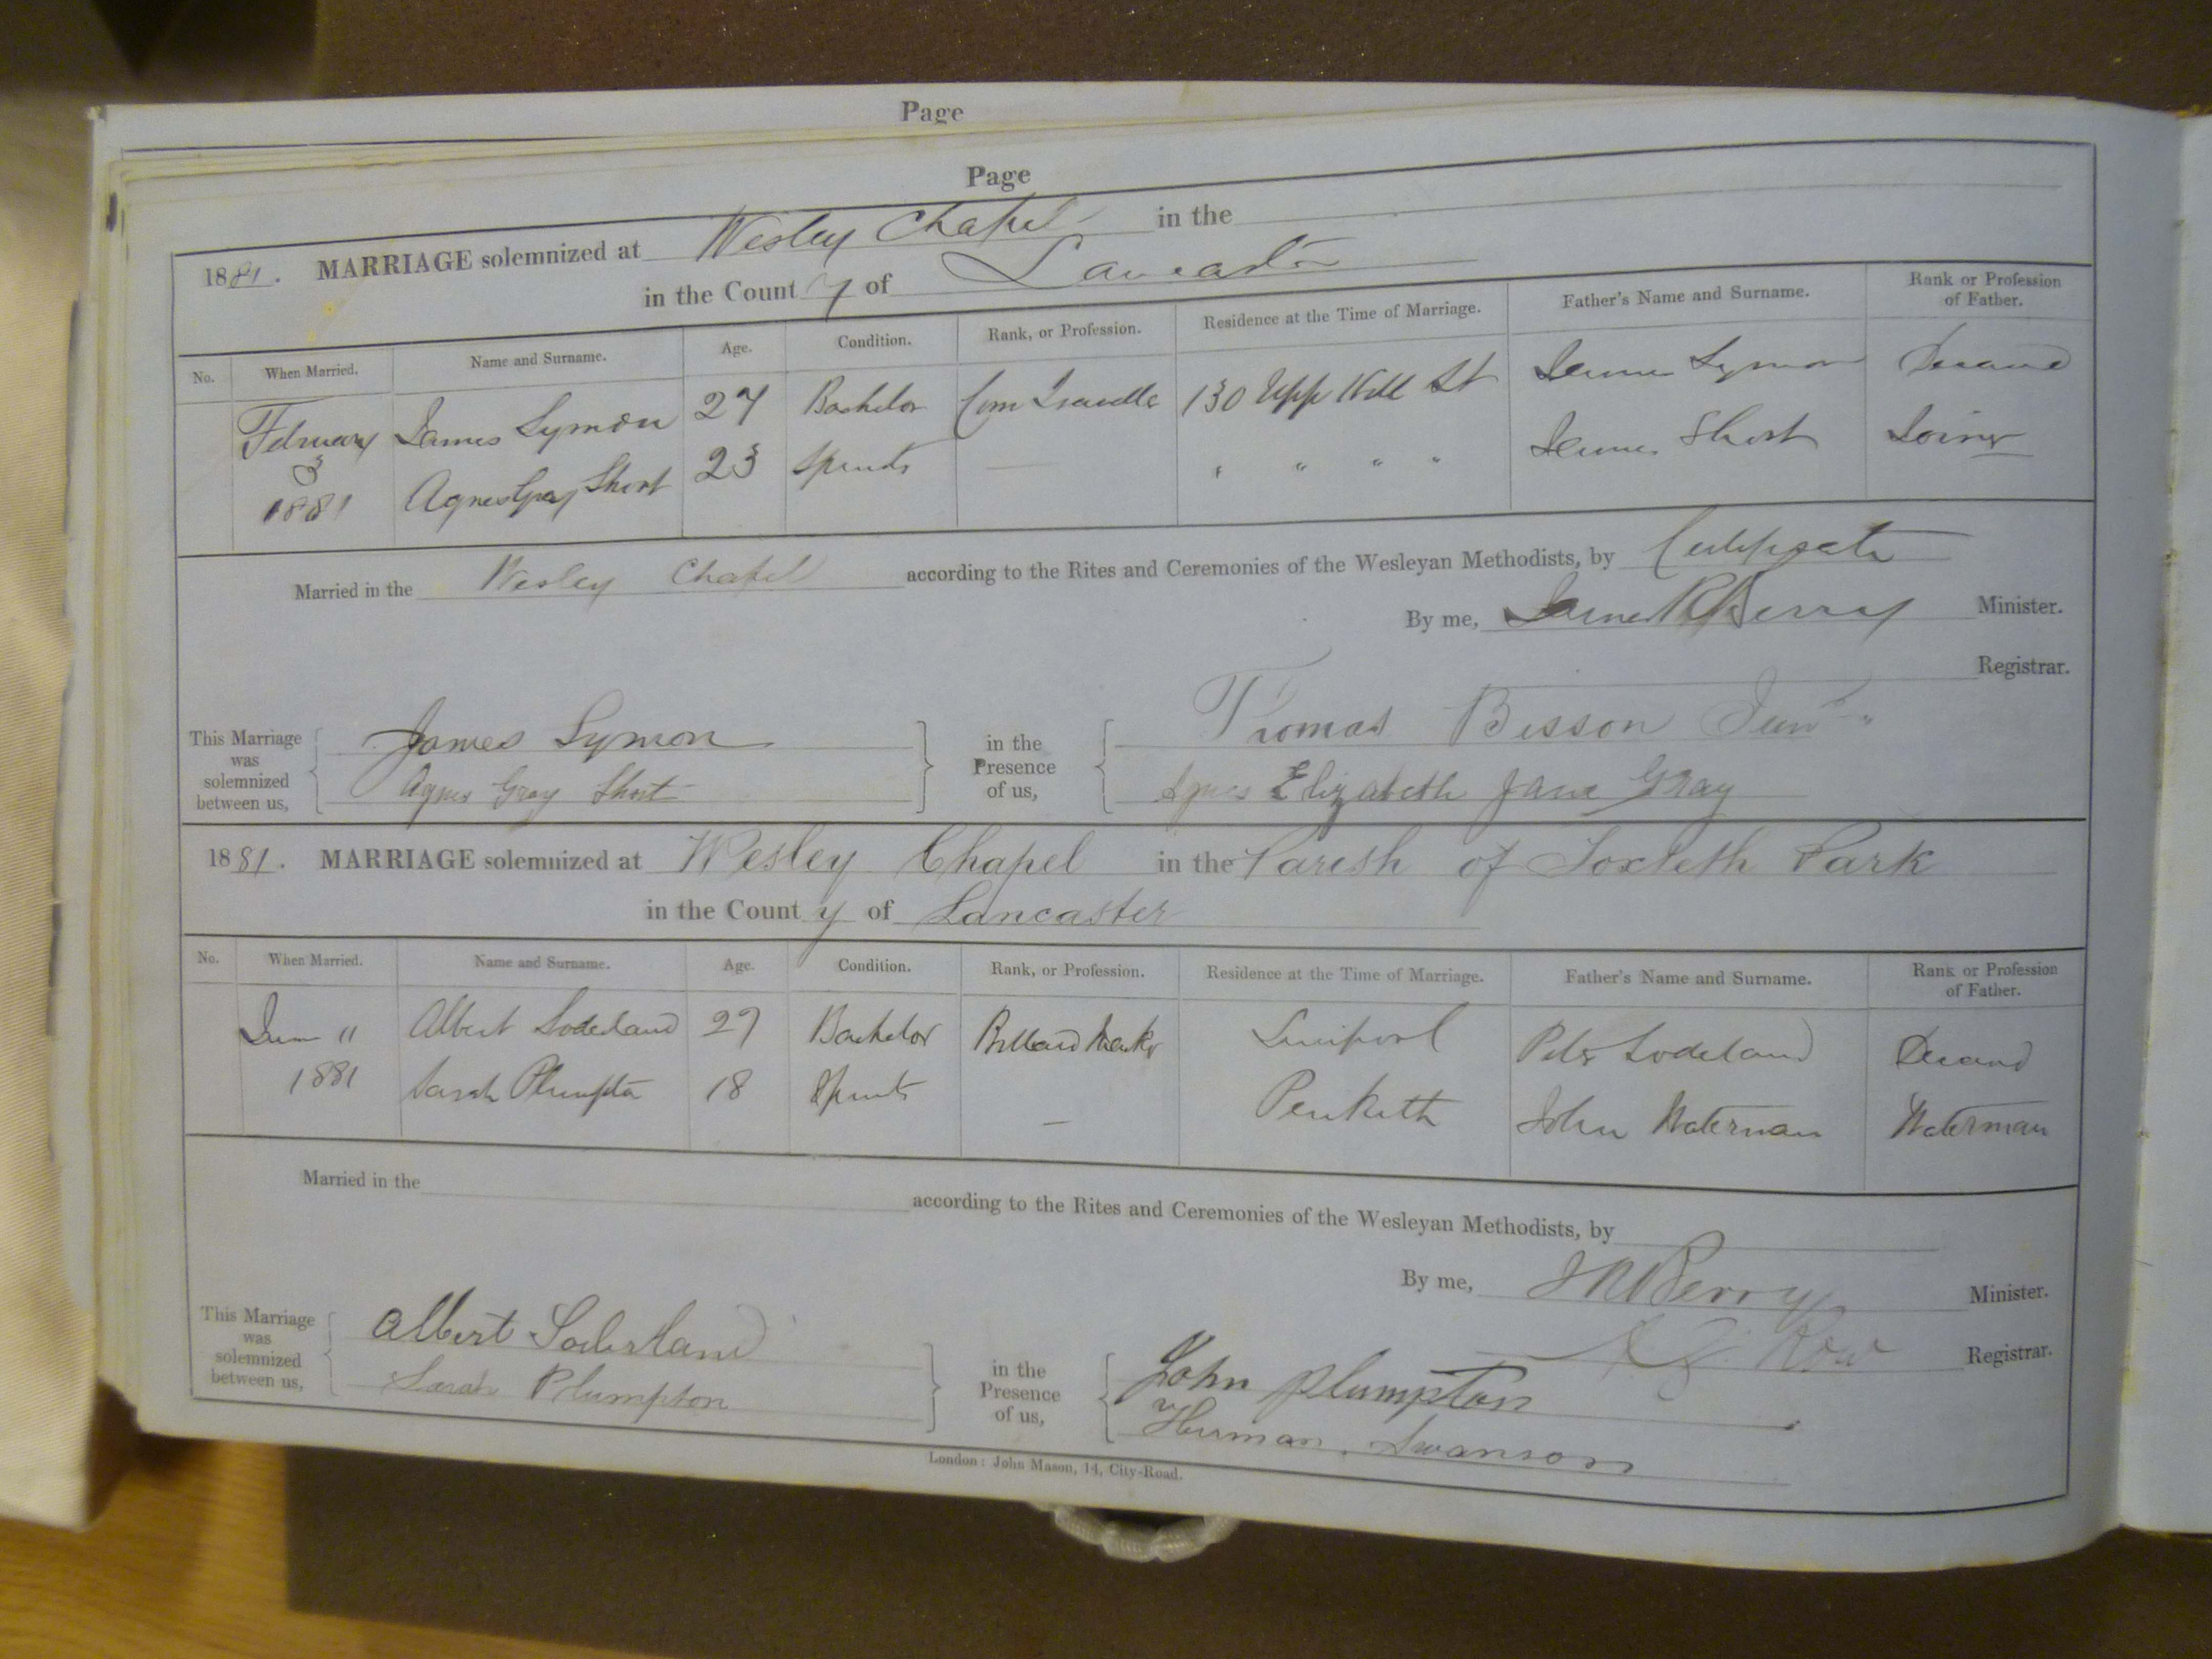 Page
Page
1881. MARRIAGE solemnized at Wesley Chapel in the
in the County of Lancaster
No. When Married. Name and Surname. Age. Condition. Rank, or Profession. Residence at the Time of Marriage. Father's Name and Surname. Rank or Profession of Father.
February 3 1881
James Symon 27 Bachelor Com Traveller 130 Upp Hill St James Symon
Agnes Gray Short 23 — " " " " James Short Joiner
Married in the Wesley Chapel according to the Rites and Ceremonies of the Wesleyan Methodists, by Certificate
By me, James R Berry Minister.
Registrar.
This Marriage was solemnized between us,
James Symon
Agnes Gray Short
in the Presence of us,
Thomas Bisson Junr
Agnes Elizabeth Jane Gray
1881. MARRIAGE solemnized at Wesley Chapel in the Parish of Toxteth Park
in the County of Lancaster
No. When Married. Name and Surname. Age. Condition. Rank, or Profession. Residence at the Time of Marriage. Father's Name and Surname. Rank or Profession of Father.
1881
Albert Soderland 27 Bachelor Billiard Liverpool Peter Soderland
Sarah Plumpton 18 — Penketh John Waterman Waterman
Married in the according to the Rites and Ceremonies of the Wesleyan Methodists, by
By me, J R Berry Minister.
Registrar.
This Marriage was solemnized between us,
Albert Soderland
Sarah Plumpton
in the Presence of us,
John Plumpton
Herman Swanson
London: John Mason, 14, City-Road.